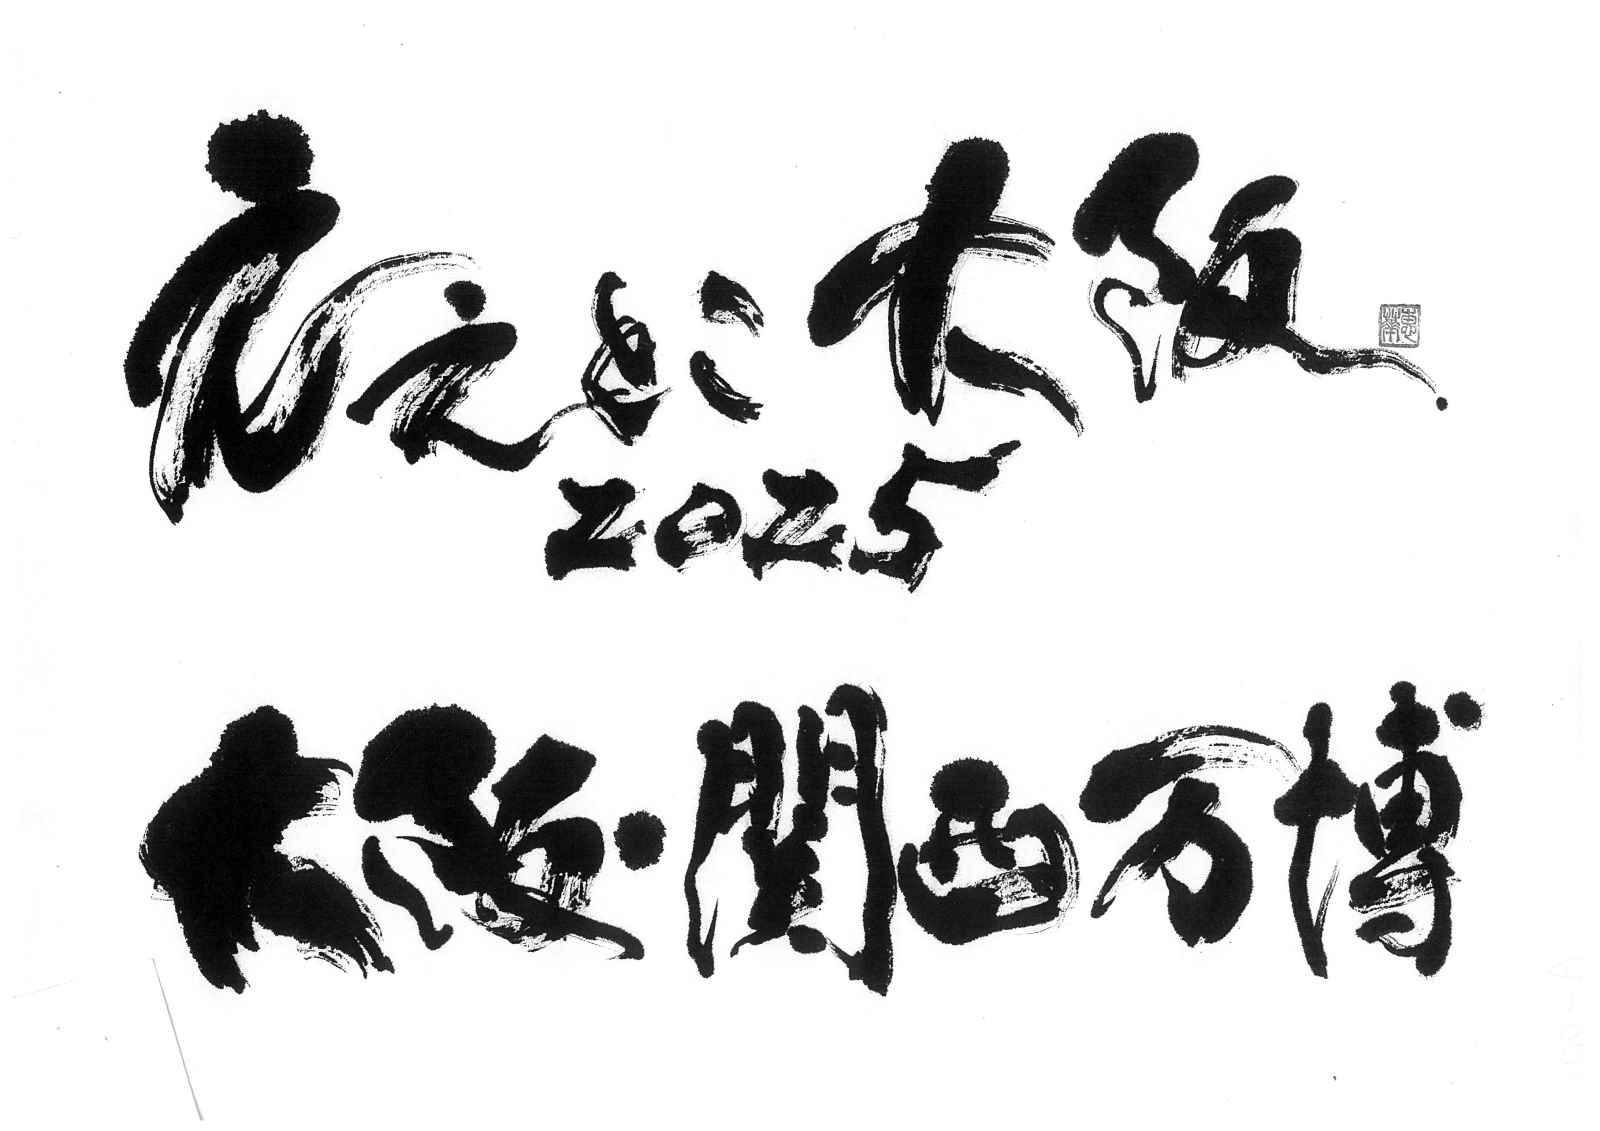 ええよこ大阪
2025
大阪・関西万博